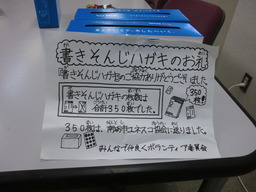 書きそんじハガキのお礼
書きそんじハガキのご協力ありがとうございました。
書きそんじハガキの枚数は
合計350枚でした。
350枚
350枚は、南砺市ユネスコ協会に送りました。
みんなで仲良くボランティア委員会